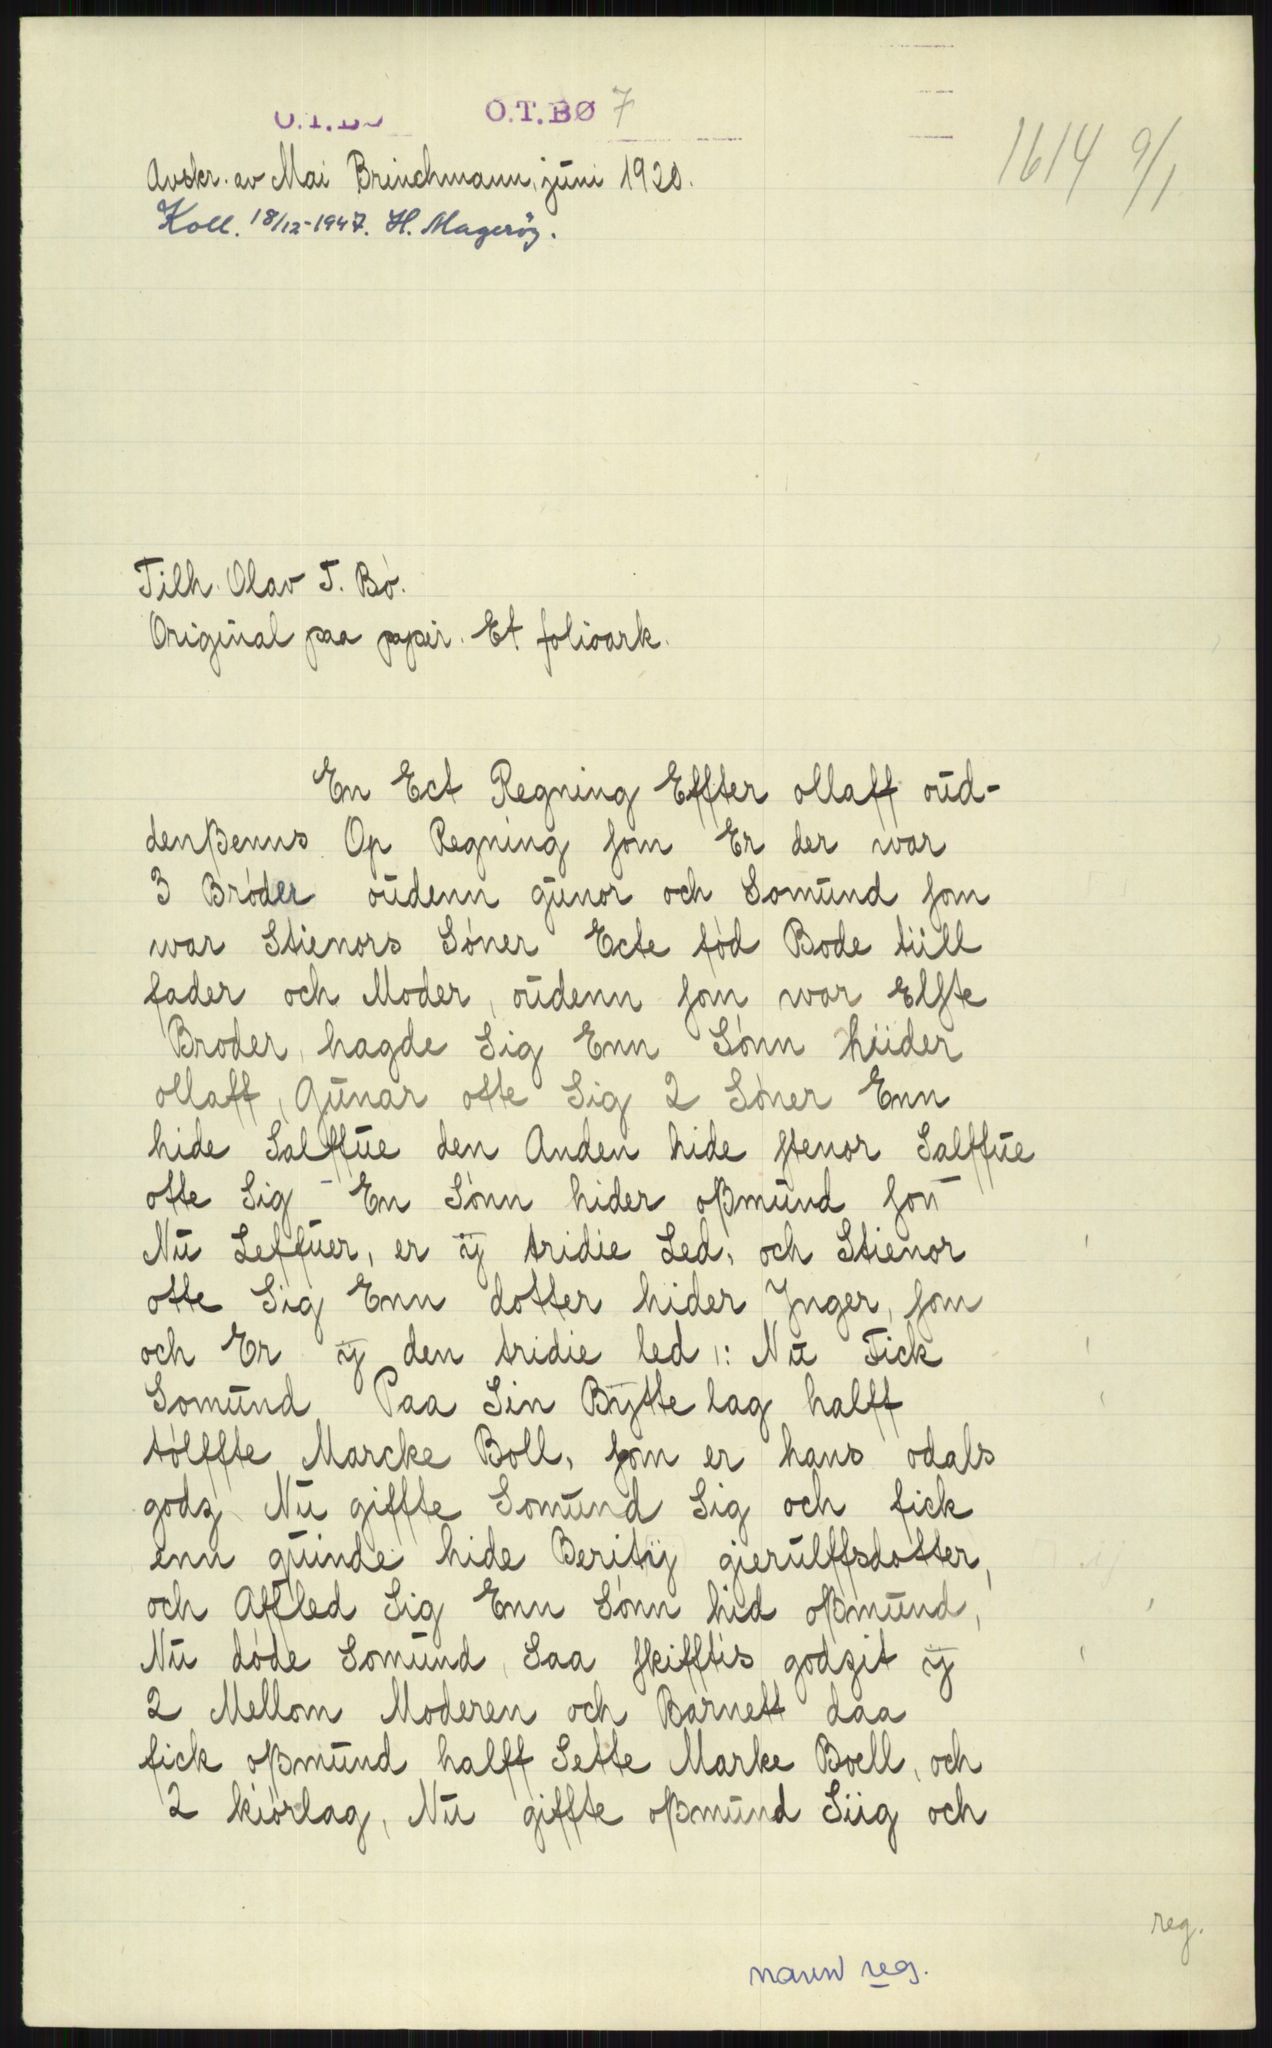 O.T.BØ O.T.BØ 7
1614 9/1
Avskr. av Mai Brinchmann, juni 1920.
Koll. 18/12-1947. H. Magerøy.
Tilh. Olav T. Bø.
Original paa papir. Et folioark.
En Ect Regning Effter ollaff oŭd-
denßenns Op Regning som Er der war
3 Brøder oŭdenn gŭnor och Somŭnd som
war Stienors Søner Ecte fød Bode tiill
fader och Moder, oŭdenn som war Elste
Broder, hagde Sig Enn Sønn hiider
ollaff, Gŭnar otte Sig 2 Søner Enn
hide Salffŭe den Anden hide stenor Salffŭe
otte Sig En Sønn hider oßmŭnd som
Nŭ Leffŭer, er ÿ tridie Led, och Stienor
otte Sig Enn dotter hider Ynger, som
och Er ÿ den tridie led ,: Nŭ Fick
Somŭnd Paa Sin Bÿtte lag halff
tølffte Marcke Boll, som er hans odals
godz Nŭ giffte Somŭnd Sig och fick
enn qŭinde hide Beritÿ gierŭlffsdotter,
och Affled Sig Enn Sønn hid oßmŭnd,
Nŭ døde Somŭnd, Saa skifftis godzit ÿ
2 Mellom Moderen och Barnett daa
fick oßmŭnd halff Sette Marke Boell, och
2 kiørlag, Nŭ giffte oßmŭnd Siig och
reg.
navne reg.